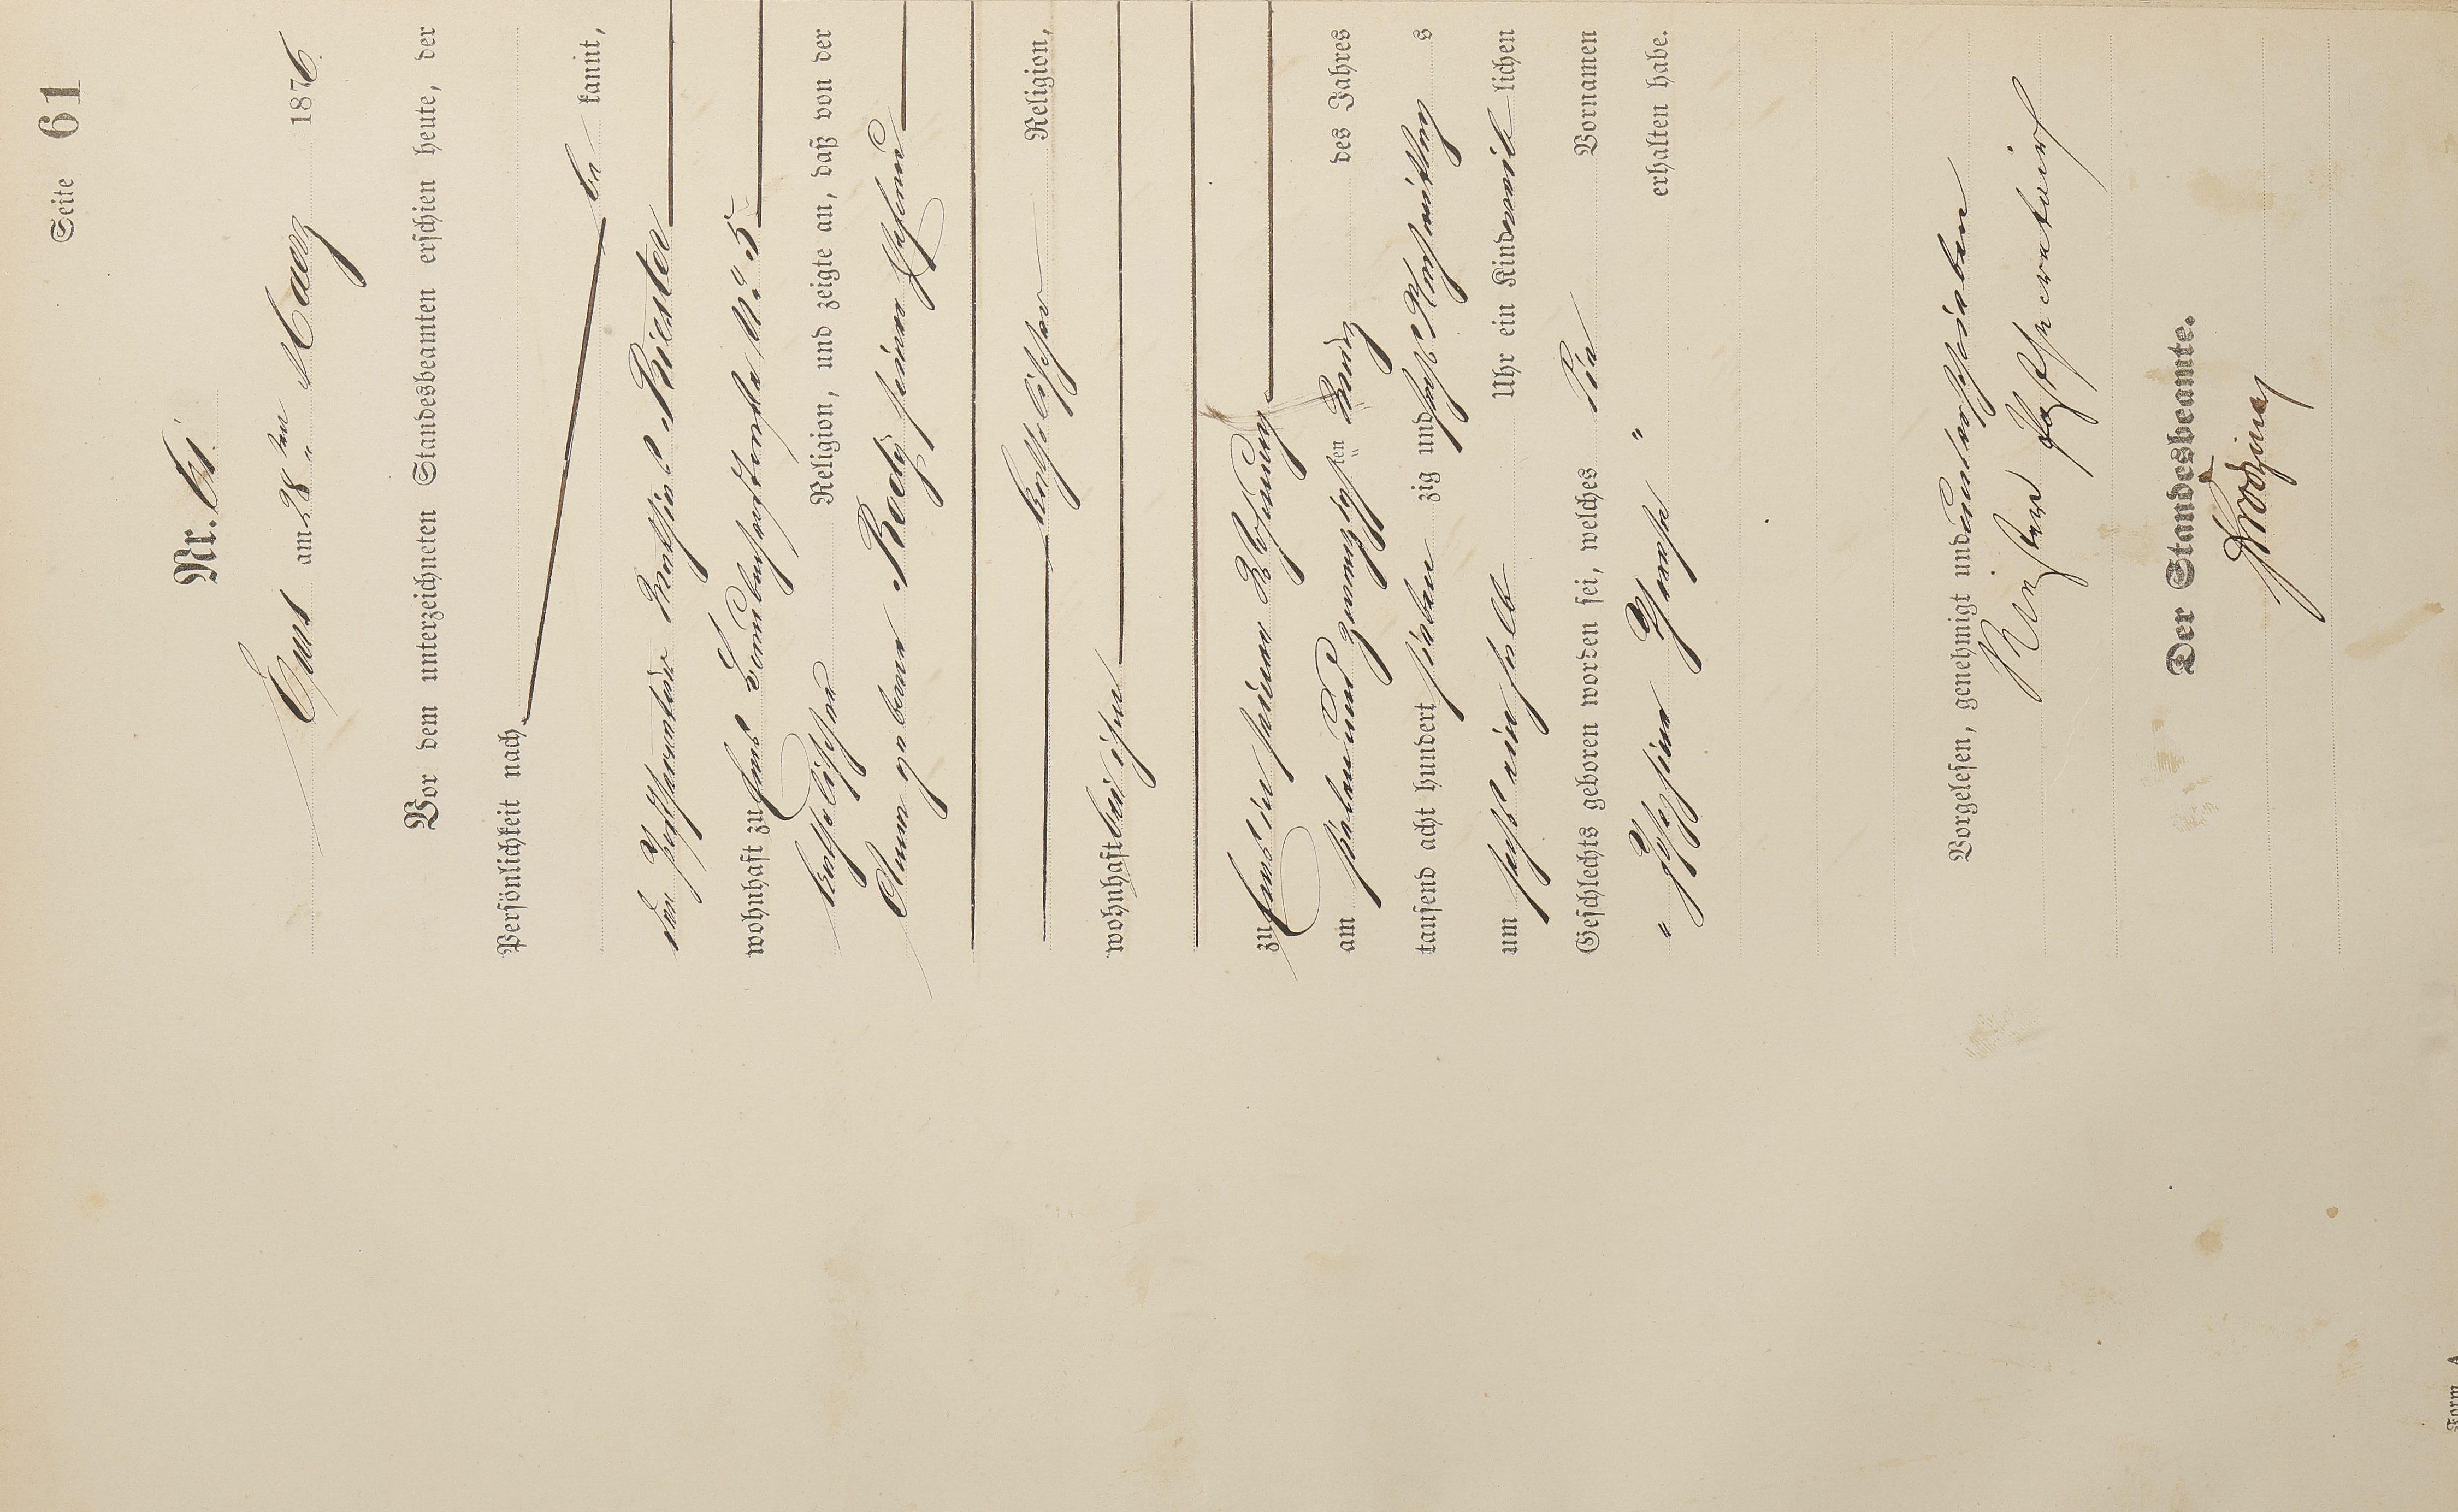 Seite 61
Nr. 61.
Ems am 28ten Maerz 1876.
Vor dem unterzeichneten Standesbeamten erschien heute, der
Persönlichkeit nach
bekannt,
der Postsecretair Mathias Riester
wohnhaft zu Ems No. 5
katholischer Religion, und zeigte an, daß von der
Anna geborene seiner Ehefrau
katholischer Religion,
wohnhaft bei ihm
zu Ems in seiner Wohnung
am siebenundzwanzigsten März des Jahres
tausend acht hundert sieben zig und sechs Nachmittags
um sechs ein halb Uhr ein Kind weiblichen
Geschlechts geboren worden sei, welches Vornamen
" Josephine " erhalten habe.
Vorgelesen, genehmigt und unterschrieben
Riester
Der Standesbeamte.
Form. A